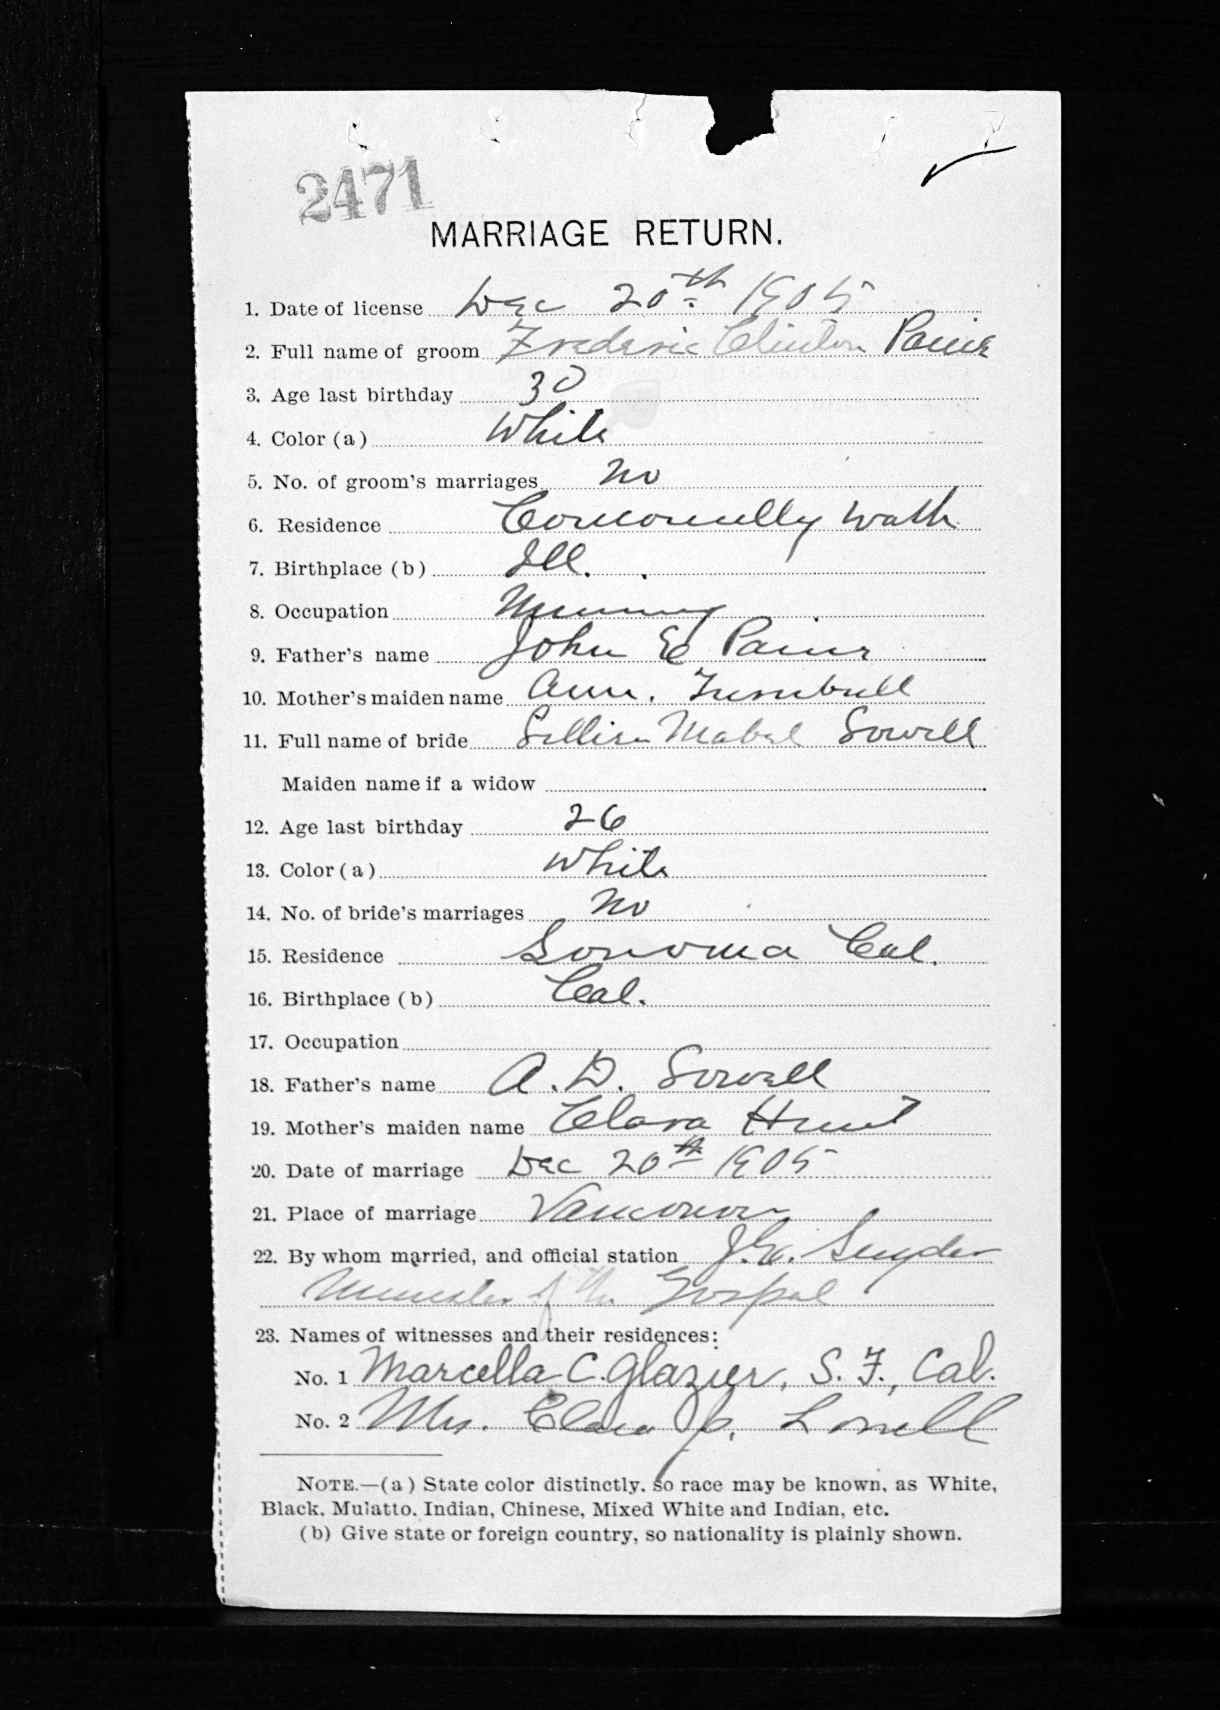 2471
MARRIAGE RETURN.
1. Date of license Dec 20th 1905
2. Full name of groom Frederic Clinton Paine
3. Age last birthday 30
4. Color (a) White
5. No. of groom's marriages No
6. Residence Conconully Wash
7. Birthplace (b) Ill.
8. Occupation Mining
9. Father's name John E Paine
10. Mother's maiden name Ann. Turnbull
11. Full name of bride Mabel Sowell
Maiden name if a widow
12. Age last birthday 26
13. Color (a) White
14. No. of bride's marriages No
15. Residence Sonoma Cal.
16. Birthplace (b) Cal.
17. Occupation
18. Father's name A. D. Sowell
19. Mother's maiden name Clara Hunt
20. Date of marriage Dec 20th 1905
21. Place of marriage Vancouver
22. By whom married, and official station J. E. Snyder
Minister of the Gospel
23. Names of witnesses and their residences:
No. 1 Marcella C. Glazier, S. F., Cal.
No. 2 Mrs. Clara
NOTE.—(a) State color distinctly, so race may be known, as White,
Black, Mulatto, Indian, Chinese, Mixed White and Indian, etc.
(b) Give state or foreign country, so nationality is plainly shown.